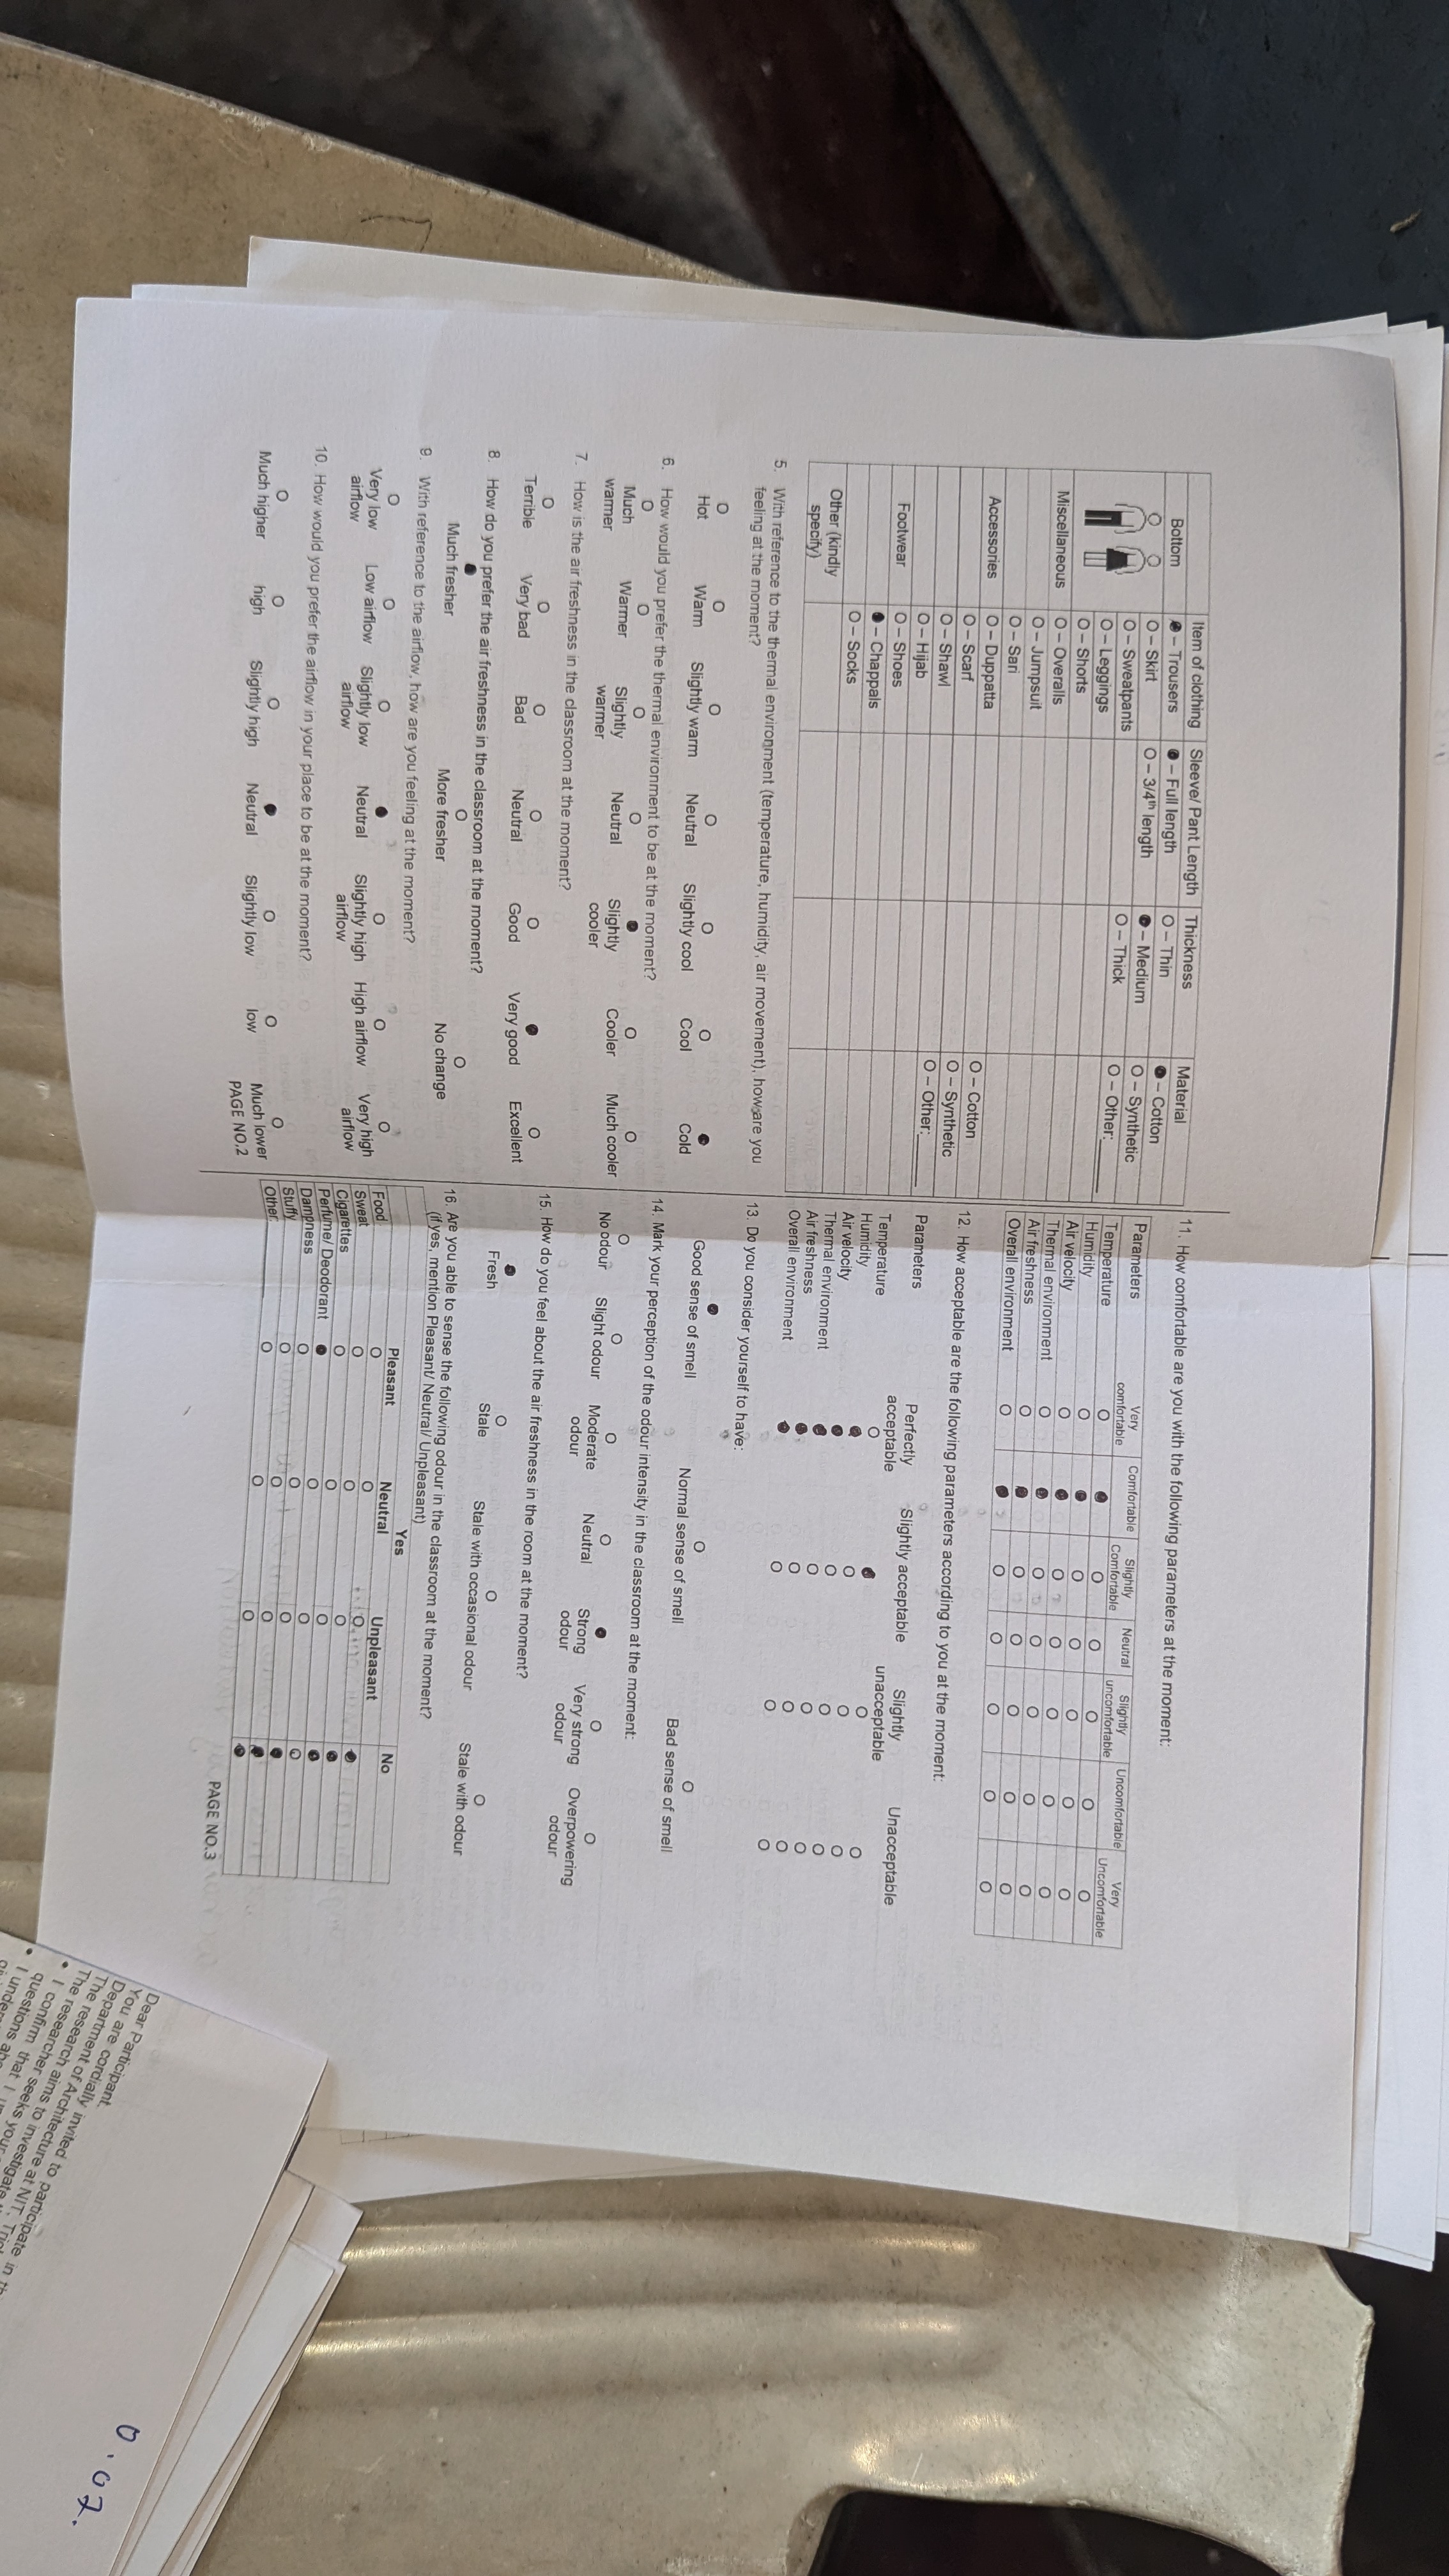 Item of clothing Sleeve/ Pant Length Thickness Material
Bottom ● – Trousers ● – Full length O – Thin ● – Cotton
O – Skirt O – 3/4th length ● – Medium O – Synthetic
O – Sweatpants O – Thick O – Other:______
O – Leggings
O – Shorts
Miscellaneous O – Overalls
O – Jumpsuit
O – Sari
Accessories O – Duppatta O – Cotton
O – Scarf O – Synthetic
O – Shawl O – Other:______
O – Hijab
Footwear O – Shoes
● – Chappals
O – Socks
Other (kindly
specify)
5. With reference to the thermal environment (temperature, humidity, air movement), how are you
feeling at the moment?
O O O O O O ●
Hot Warm Slightly warm Neutral Slightly cool Cool Cold
6. How would you prefer the thermal environment to be at the moment?
O O O O ● O O
Much Warmer Slightly Neutral Slightly Cooler Much cooler
warmer warmer cooler
7. How is the air freshness in the classroom at the moment?
O O O O O ● O
Terrible Very bad Bad Neutral Good Very good Excellent
8. How do you prefer the air freshness in the classroom at the moment?
● O O
Much fresher More fresher No change
9. With reference to the airflow, how are you feeling at the moment?
O O O ● O O O
Very low Low airflow Slightly low Neutral Slightly high High airflow Very high
airflow airflow airflow airflow
10. How would you prefer the airflow in your place to be at the moment?
O O O ● O O O
Much higher high Slightly high Neutral Slightly low low Much lower
PAGE NO.2
11. How comfortable are you with the following parameters at the moment:
Parameters Very Comfortable Slightly Neutral Slightly Uncomfortable Very
comfortable Comfortable uncomfortable Uncomfortable
Temperature O ● O O O O O
Humidity O ● O O O O O
Air velocity O ● O O O O O
Thermal environment O ● O O O O O
Air freshness O ● O O O O O
Overall environment O ● O O O O O
12. How acceptable are the following parameters according to you at the moment:
Parameters Perfectly Slightly acceptable Slightly Unacceptable
acceptable unacceptable
Temperature O ● O O
Humidity ● O O O
Air velocity ● O O O
Thermal environment ● O O O
Air freshness ● O O O
Overall environment ● O O O
13. Do you consider yourself to have:
● O O
Good sense of smell Normal sense of smell Bad sense of smell
14. Mark your perception of the odour intensity in the classroom at the moment:
O O O O ● O O
No odour Slight odour Moderate Neutral Strong Very strong Overpowering
odour odour odour odour
15. How do you feel about the air freshness in the room at the moment?
● O O O
Fresh Stale Stale with occasional odour Stale with odour
16. Are you able to sense the following odour in the classroom at the moment?
(if yes, mention Pleasant/ Neutral/ Unpleasant)
Yes No
Pleasant Neutral Unpleasant
Food O O O ●
Sweat O O O ●
Cigarettes O O O ●
Perfume/ Deodorant ● O O O
Dampness O O O ●
Stuffy O O O ●
Other:__________ O O O ●
PAGE NO.3
0.07.
Dear Participant.
You are cordially invited to participate in
Department of Architecture at NIT,
The research aims to investigate
The researcher seeks your
• I confirm that I
questions
• I